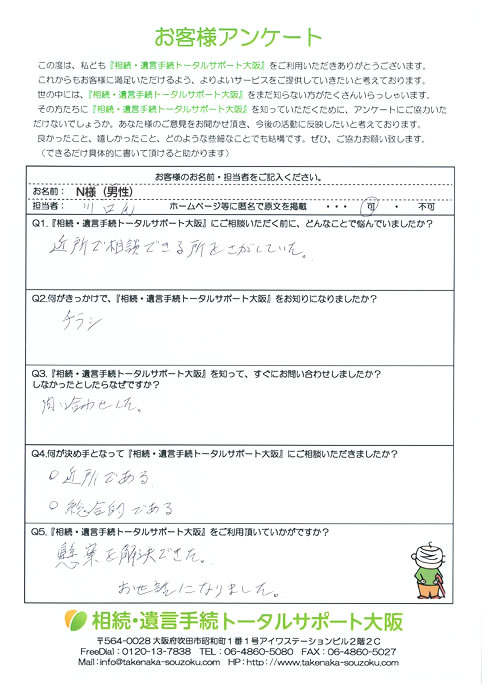 お客様アンケート
この度は、私ども『相続・遺言手続トータルサポート大阪』をご利用いただきありがとうございます。
これからもお客様に満足いただけるよう、よりよいサービスをご提供していきたいと考えております。
世の中には、『相続・遺言手続トータルサポート大阪』をまだ知らない方がたくさんいらっしゃいます。
その方たちに『相続・遺言手続トータルサポート大阪』を知っていただくために、アンケートにご協力いた
だけないでしょうか。あなた様のご意見をお聞かせ頂き、今後の活動に反映したいと考えております。
良かったこと、嬉しかったこと、どのような些細なことでも結構です。ぜひ、ご協力お願い致します。
（できるだけ具体的に書いて頂けると助かります）
お客様のお名前・担当者をご記入ください。
お名前： N様（男性）
担当者： 川口氏 ホームページ等に匿名で原文を掲載 ・・・ 可 ・ 不可
Q1.『相続・遺言手続トータルサポート大阪』にご相談いただく前に、どんなことで悩んでいましたか？
近所で相談できる所をさがしていた。
Q2.何がきっかけで、『相続・遺言手続トータルサポート大阪』をお知りになりましたか？
チラシ
Q3.『相続・遺言手続トータルサポート大阪』を知って、すぐにお問い合わせしましたか？
しなかったとしたらなぜですか？
問い合わせした。
Q4.何が決め手となって『相続・遺言手続トータルサポート大阪』にご相談いただきましたか？
○近所である
○総合的である
Q5.『相続・遺言手続トータルサポート大阪』をご利用頂いていかがですか？
懸案を解決できた。
お世話になりました。
相続・遺言手続トータルサポート大阪
〒564-0028 大阪府吹田市昭和町1番1号アイワステーションビル2階2C
FreeDial：0120-13-7838 TEL：06-4860-5080 FAX：06-4860-5027
Mail：info@takenaka-souzoku.com HP：http://www.takenaka-souzoku.com